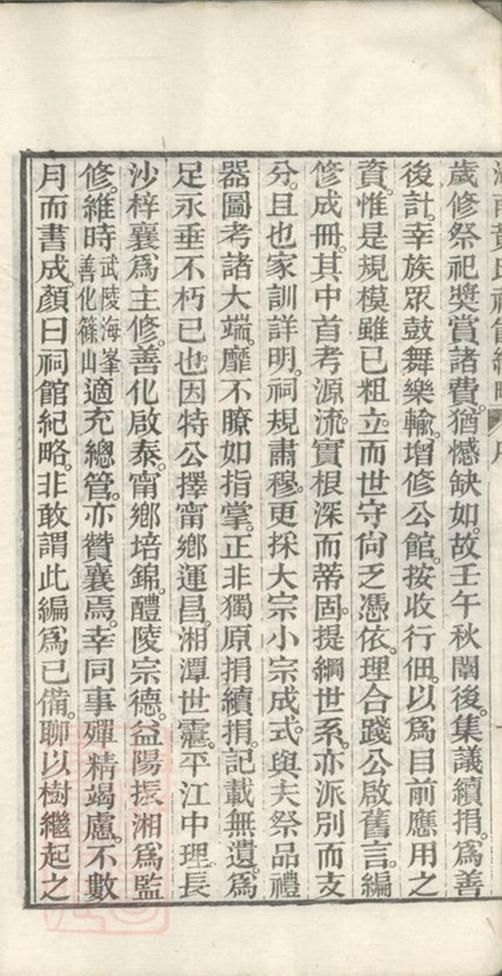 歲修祭祀獎賞諸費。猶憾缺如。故壬午秋闈後。集議續捐。爲善
後計。幸族眾鼓舞樂輸。增修公館。按收行佃。以爲目前應用之
資。惟是規模雖已粗立。而世守尙乏憑依。理合踐公啟舊言。編
修成冊。其中首考源流。實根深而蒂固。提綱世系。亦派別而支
分。且也家訓詳明。祠規肅穆。更採大宗小宗成式。與夫祭品禮
器圖考諸大端。靡不瞭如指掌。正非獨原捐續捐。記載無遺。爲
足永垂不朽已也。因特公擇甯鄉運昌。湘潭世霱。平江中理。長
沙梓襄爲主修。善化啟泰。甯鄉培錦。醴陵宗德。益陽振湘爲監
修。維時武陵海峯善化篠山適充總管。亦贊襄焉。幸同事殫精竭慮。不數
月而書成。顏曰祠館紀略。非敢謂此編爲已備。聊以樹繼起之